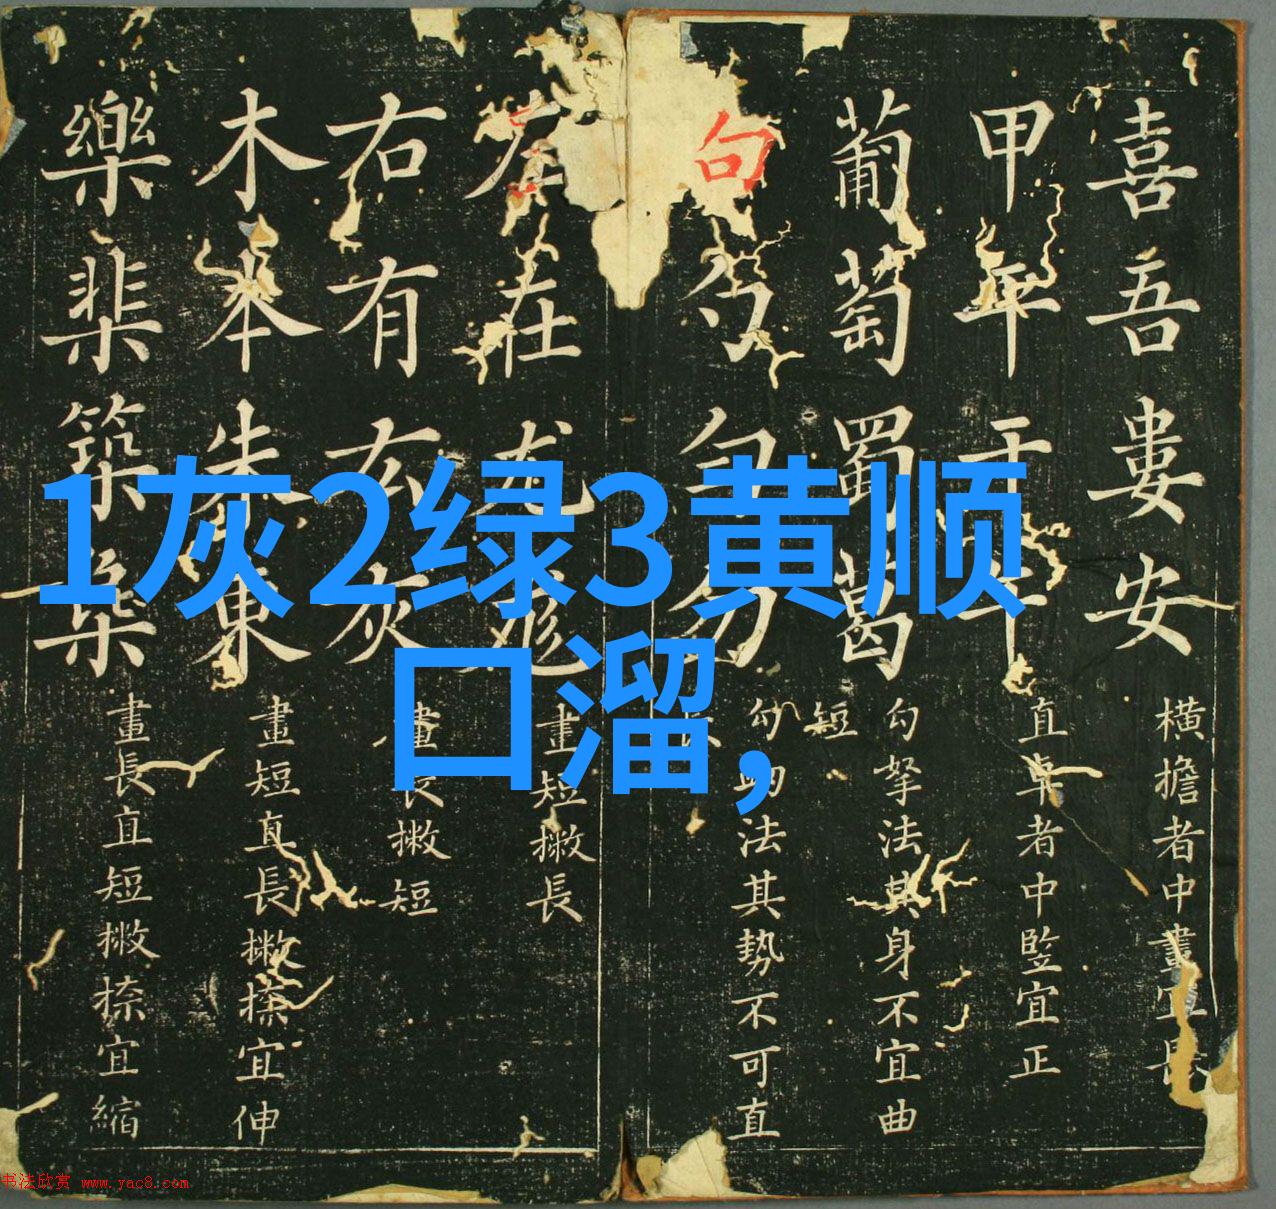 喜吾婁安
橫擔者中畫宜長
甲年干平
直卓者中監宜正
葡萄蜀葛
勾拏法其身不宜曲
短
句勹勾勿
勾法其勢不可直
左在尤尨
畫短撇長
右有友灰
畫長撇短
木本朱東
畫短直長撇捺宜伸
樂棐築槃
畫長直短撇捺宜縮
1灰2绿3黄顺
口溜，
书法欣赏 www.yac8.com